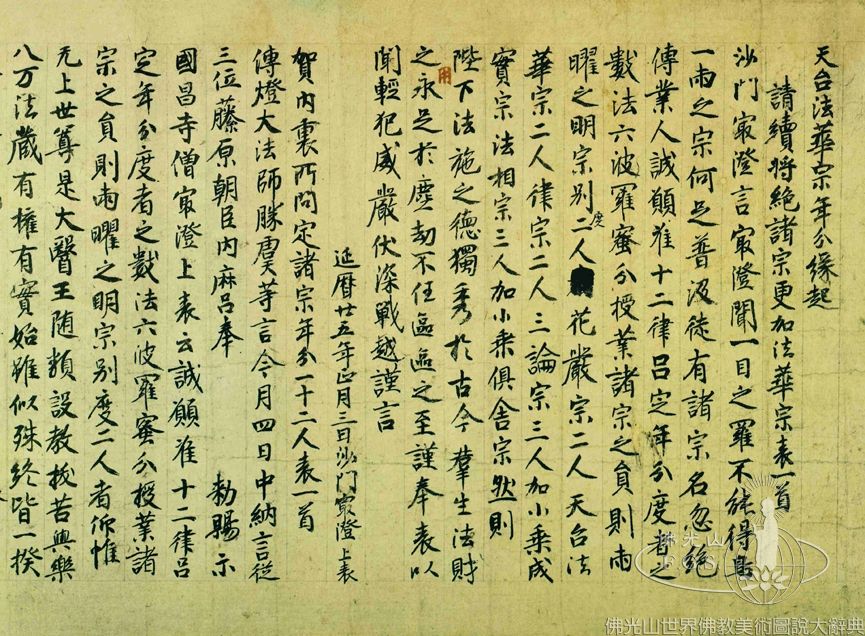 天台法華宗年分縁起
請續將絶諸宗更加法華宗表一首
沙門冣澄言冣澄聞一目之羅不能得鳥
一兩之宗何足普汲徒有諸宗名忽絶
傳業人誠願准十二律呂定年分度者之
數法六波羅蜜分授業諸宗之員則兩
曜之明宗別度二人花嚴宗二人天台法
華宗二人律宗二人三論宗三人加小乘成
實宗法相宗三人加小乘俱舍宗然則
陛下法施之德獨秀於古今羣生法財
之永足於塵劫不任區區之至謹奉表以
聞輕犯威嚴伏深戰越謹言
延曆廿五年正月三日沙門冣澄上表
賀内裏所問定諸宗年分一十二人表一首
傳燈大法師勝虞等言今月四日中納言從
三位藤原朝臣内麻呂奉 勅賜示
國昌寺僧冣澄上表云誠願准十二律呂
定年分度者之數法六波羅蜜分授業諸
宗之員則兩曜之明宗別度二人者仰惟
无上世尊是大醫王随類設教拔苦與樂
八万法藏有權有實始雖似殊終皆一揆
佛光山
佛光山世界佛教美術圖說大辭典